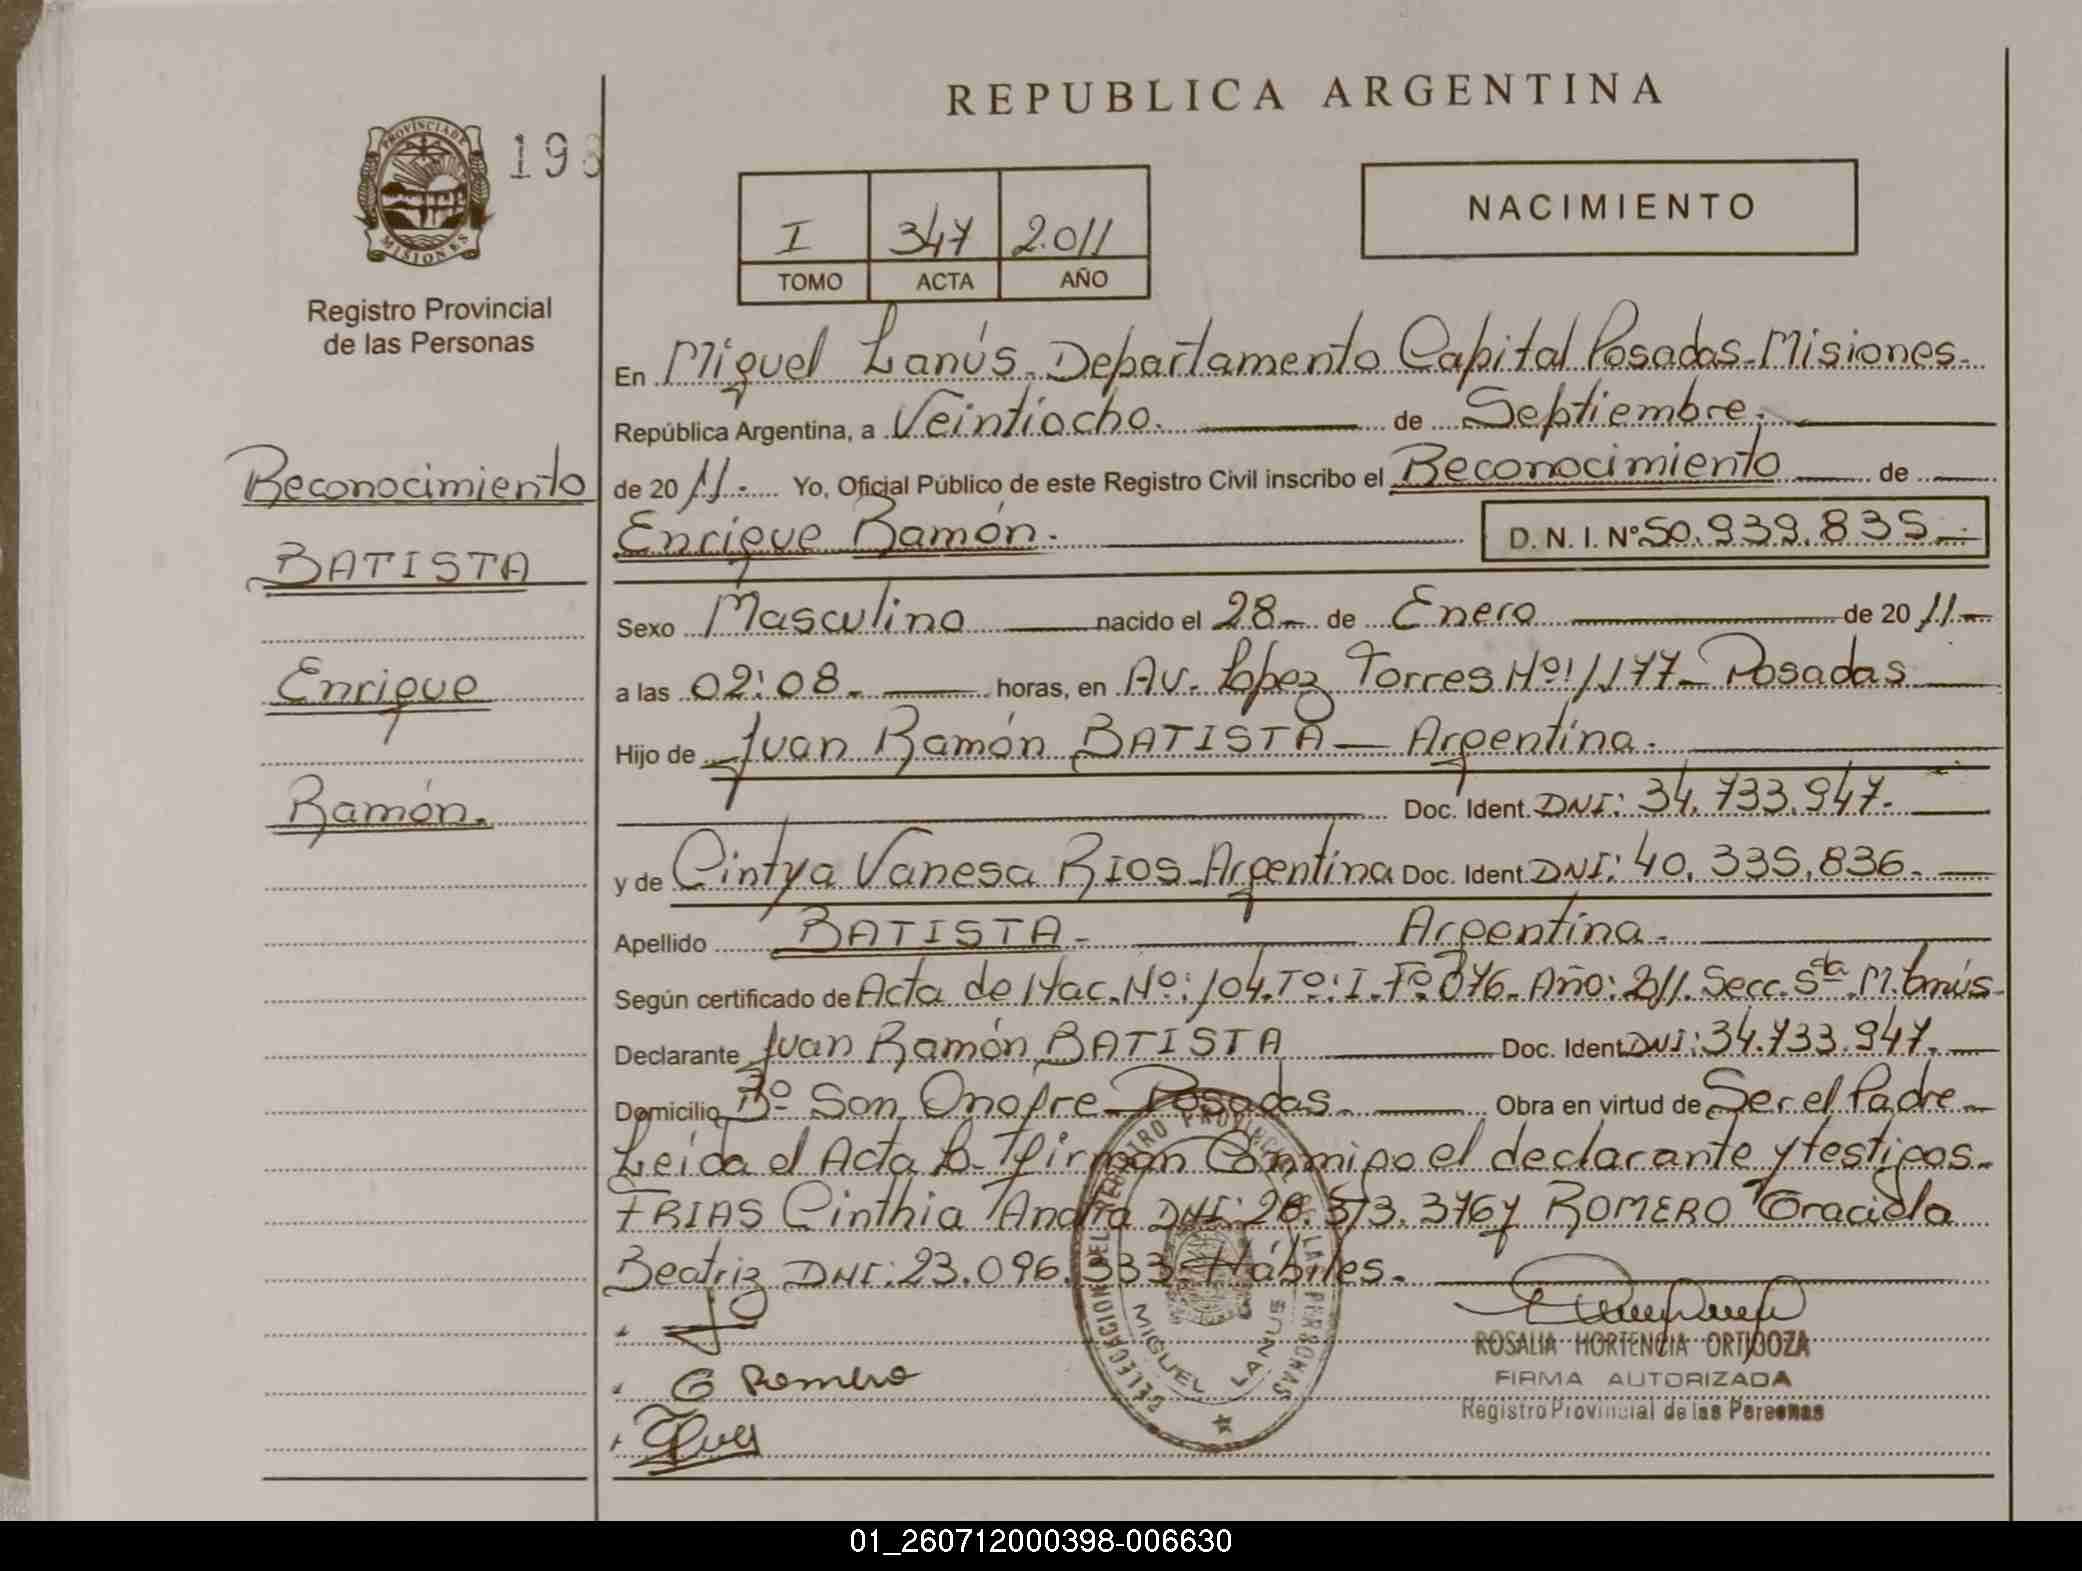 REPUBLICA ARGENTINA
PROVINCIA DE
MISIONES
Registro Provincial
de las Personas
I 347 2.011
TOMO ACTA AÑO
NACIMIENTO
En Miguel Lanús. Departamento Capital Posadas-Misiones.
República Argentina, a Veintiocho. de Septiembre.
Reconocimiento
de 2011.- Yo, Oficial Público de este Registro Civil inscribo el Reconocimiento de
Enrique Ramón. D. N. I. Nº 50.939.835.-
BATISTA
Sexo Masculino nacido el 28- de Enero de 2011.-
Enrique
a las 02:08. horas, en Av. López Torres Nº 1177- Posadas
Hijo de Juan Ramón BATISTA - Argentina.
Ramón.
Doc. Ident. DNI: 34.733.947.
y de Cintya Vanesa RIOS-Argentina Doc. Ident. DNI: 40.335.836.
Apellido BATISTA- Argentina.
Según certificado de Acta de Nac. Nº: 104. Tº: I. Fº 076. Año: 2011. Secc. Sta. M. Lanús
Declarante Juan Ramón BATISTA Doc. Ident. DNI: 34.733.947.
Domicilio Bº San Onofre Posadas. Obra en virtud de Ser el Padre
Leida el Acta la firman Conmigo el declarante y testigos.
FRIAS Cinthia DNI: 28. 376 y ROMERO Graciela
Beatriz DNI: 23.096.333. Hábiles.
DELEGACION DEL REGISTRO PROVINCIAL DE LAS PERSONAS
MIGUEL LANUS
G Romero
ROSALIA HORTENCIA ORTIGOZA
FIRMA AUTORIZADA
Registro Provincial de las Personas
01_260712000398-006630